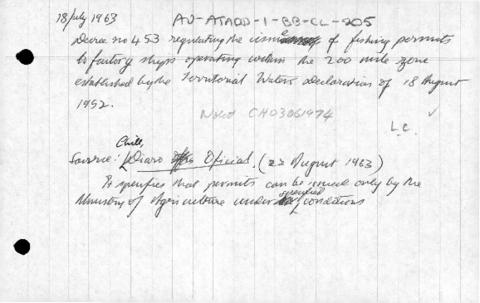 18 July 1963 AU-ATADD-1-BB-CL-205
Decree no 453 regulating the issue of fishing permits
to factory ships operating within the 200 mile zone
established by the Territorial Waters Declaration of 18 August
1952.
Noted CH03061974
L.C. ✓
Chile,
Source: Diario Oficial. (23 August 1963)
It specifies that permits can be issued only by the
specified
Ministry of Agriculture under conditions